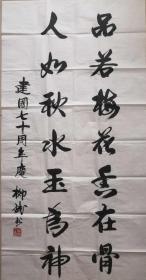 品若梅花香在骨
人如秋水玉为神
建国七十周年庆 柳斌书